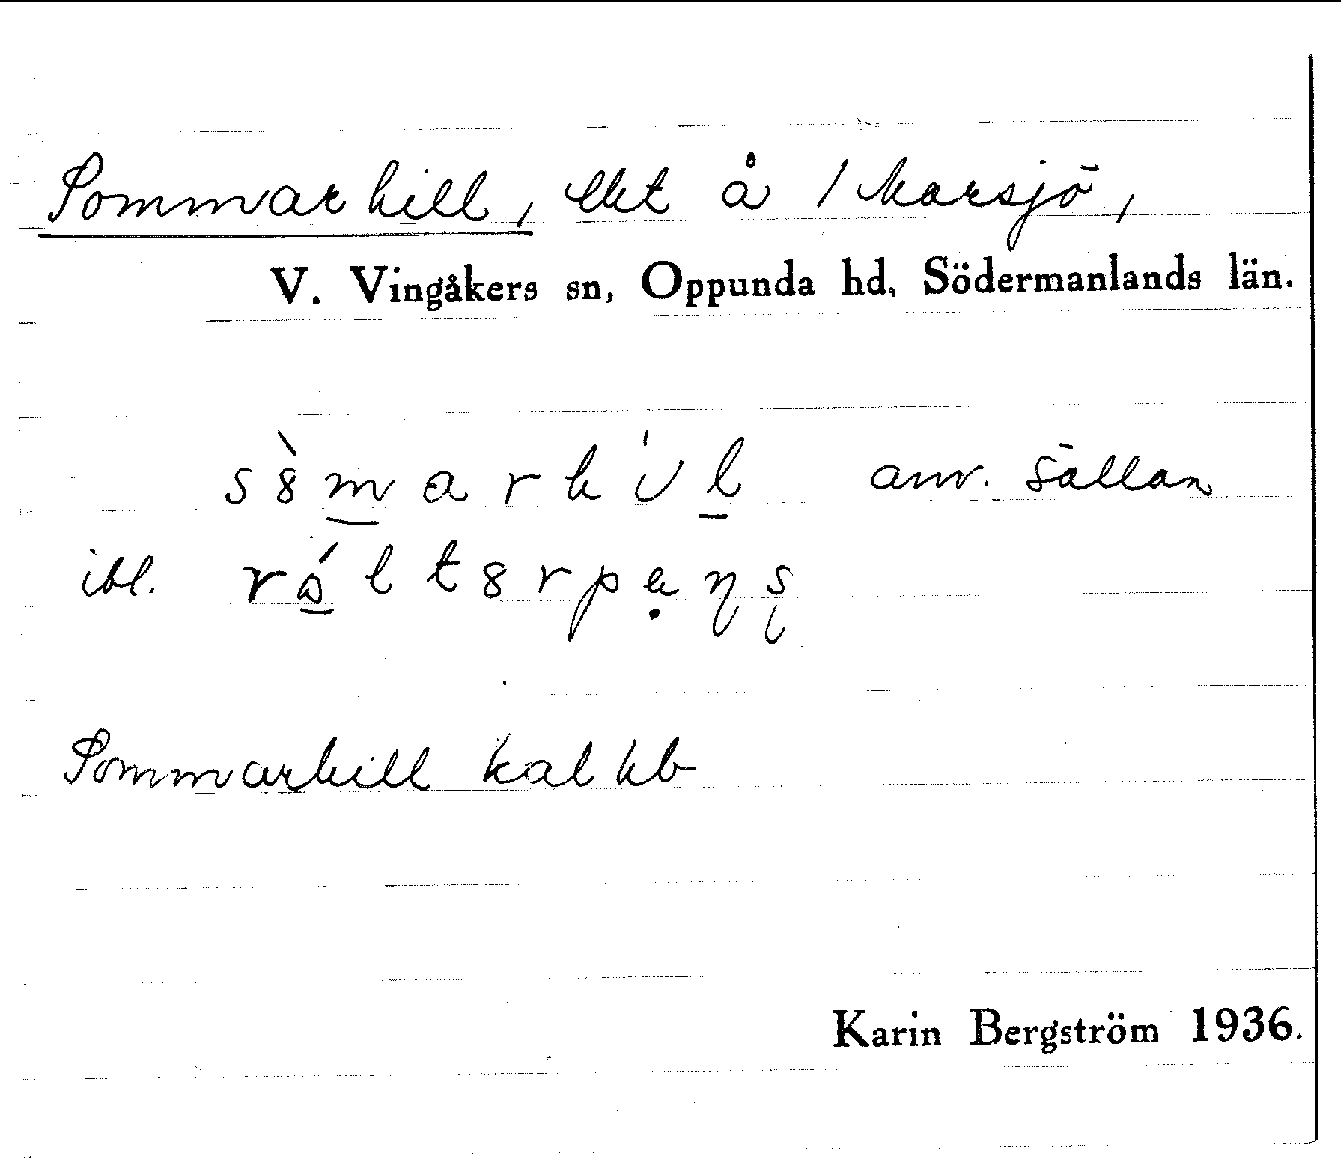 Sommarhill, lht å 1 Marsjö,
V. Vingåkers sn, Oppunda hd, Södermanlands län.
anv. sällan
ibl.
Sommarhill kal hb
Karin Bergström 1936.